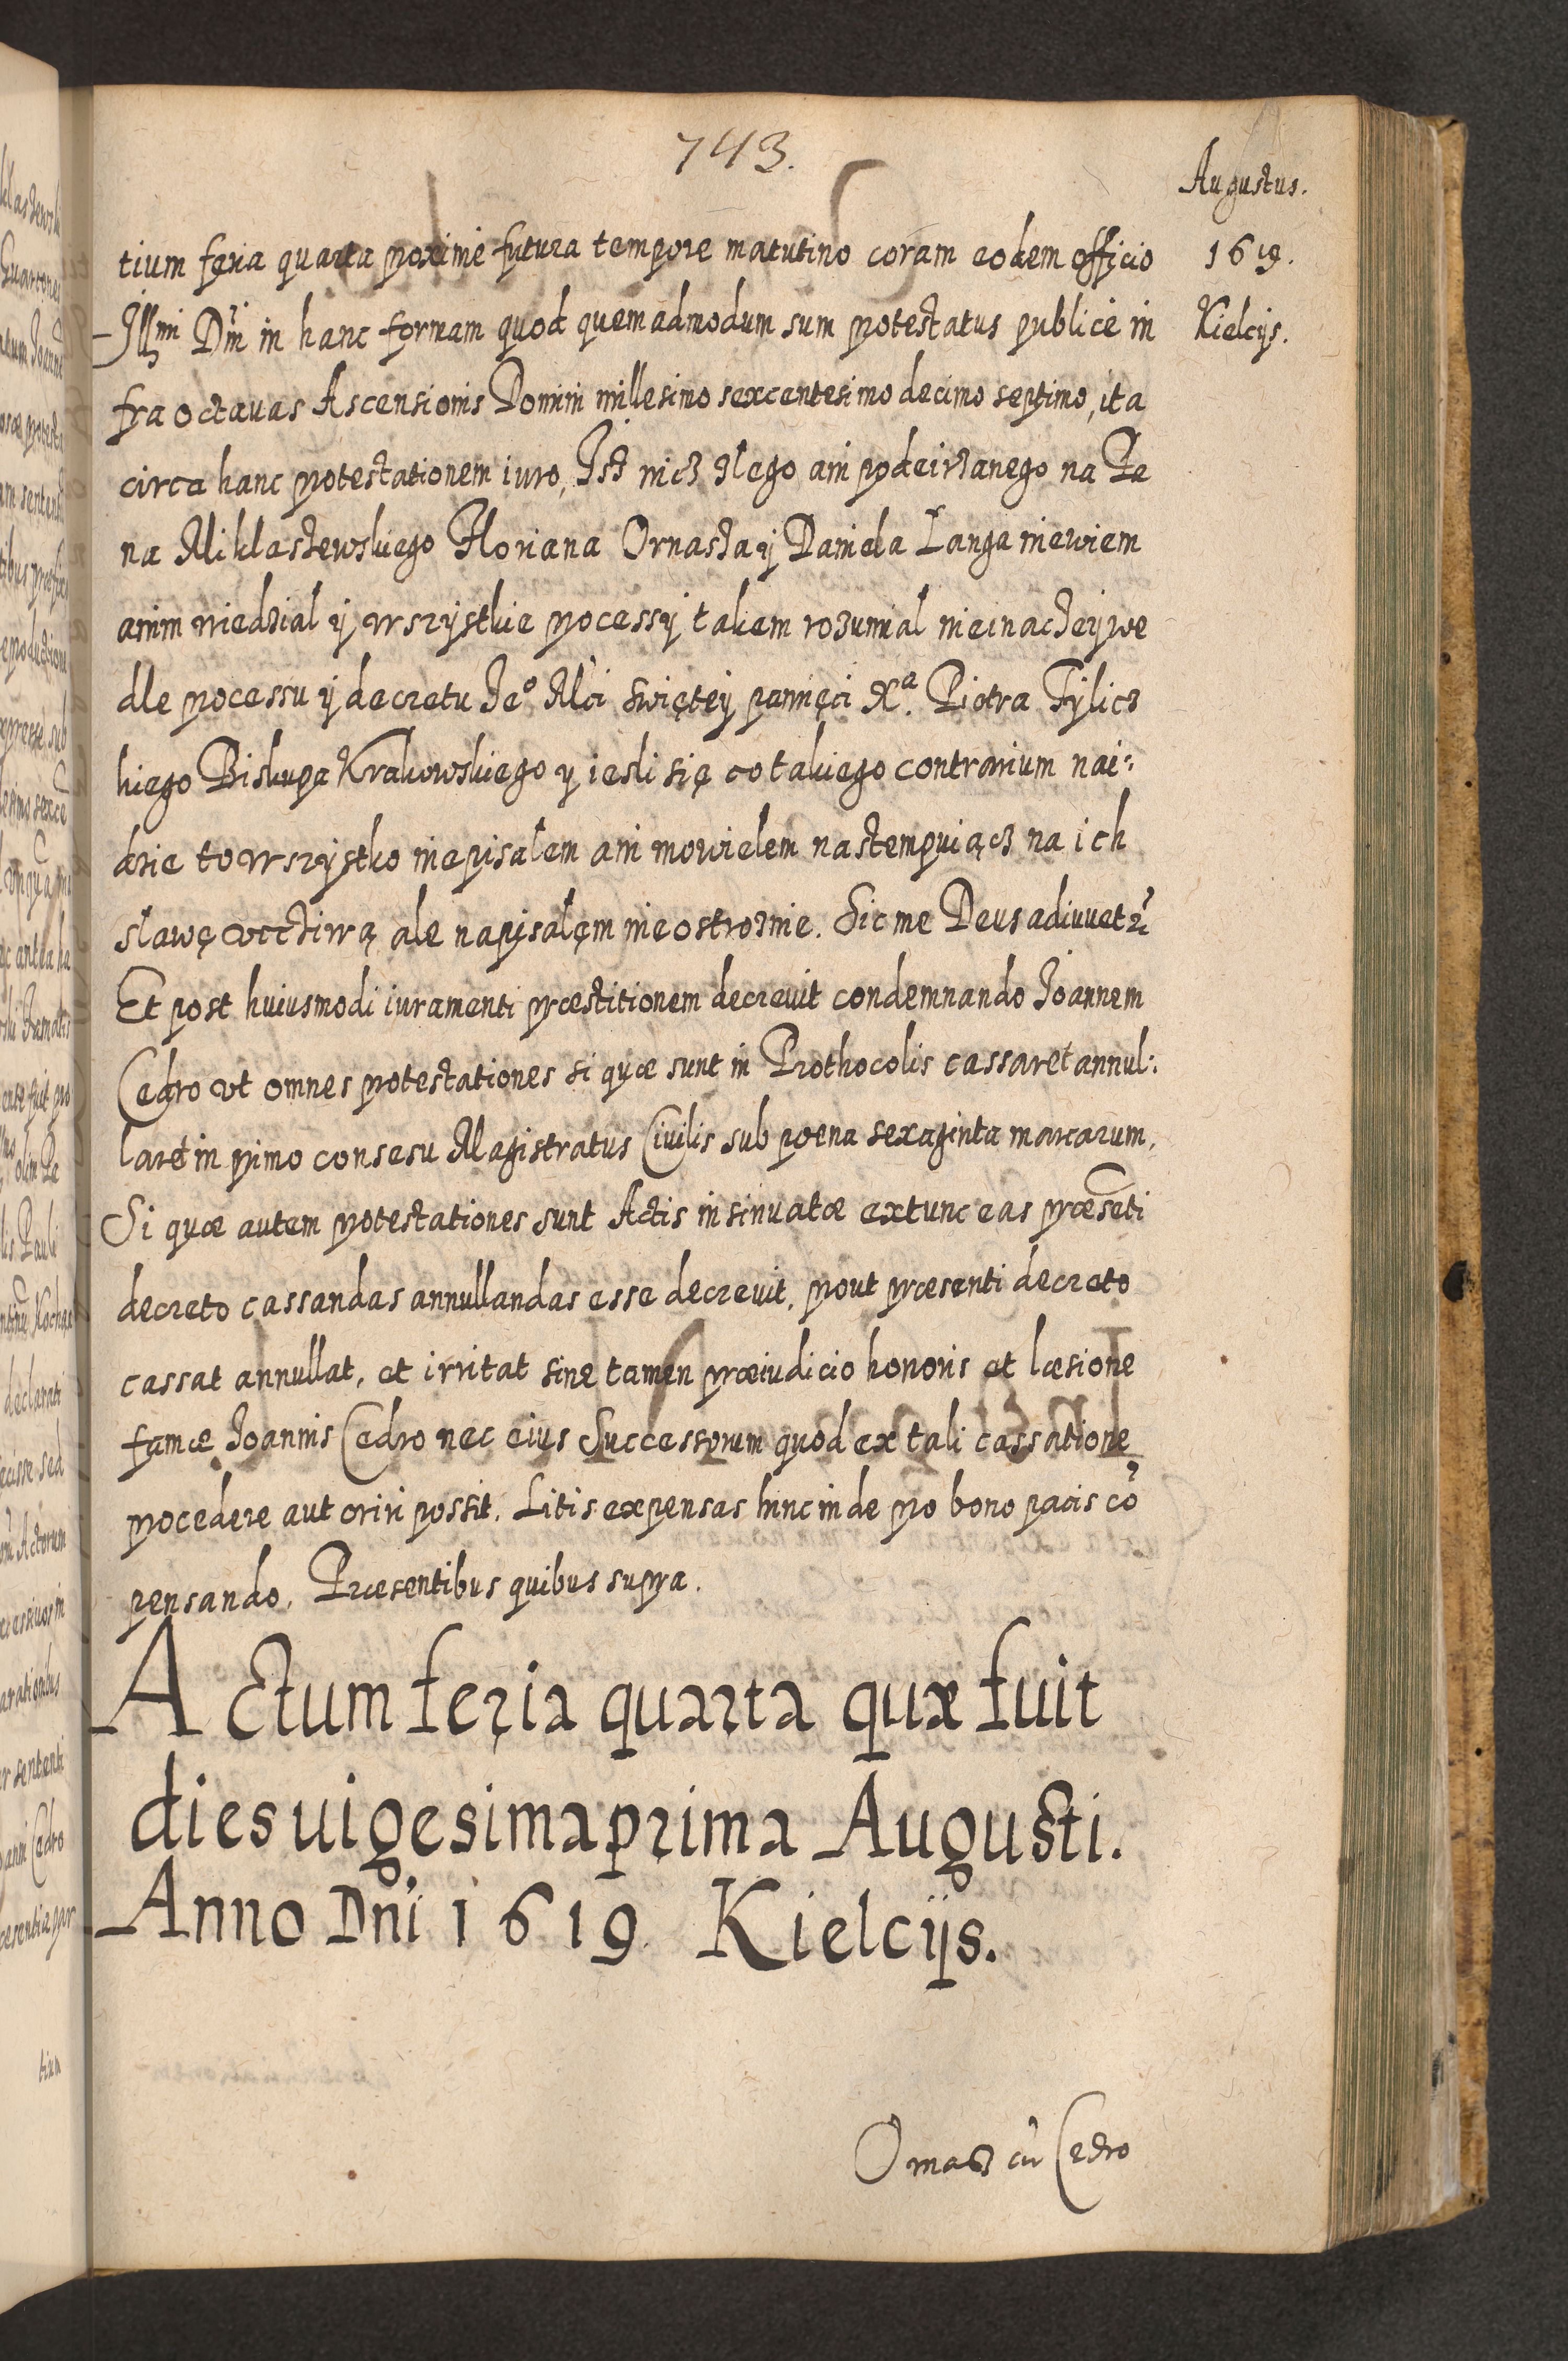 743.
Augustus.
1619.
Kielcijs.
tium feria quarta proxime futura tempore matutino coram eodem officio
Illmi Dni in hanc formam quod quemadmodum sum protestatus publice in
fra octauas Ascensionis Domini millesimo sexcentesimo decimo septimo, ita
circa hanc protestationem iuro, Isz nicz zlego ani podeirzanego na Pa
na Miklaszewskiego Floriana Ornasza ÿ Daniela Langa niewiem
anim wiedzial ÿ wszystkie processÿ takem rozumial nieinaczeÿ we
dle processu ÿ decretu Jeo Mci swiętey pamięci Xa. Piotra Tylicz
kiego Biskupa Krakowskiego y iesli się co takiego contrarium nai:
dzie to wszystko niepisałem ani mowielem nastempuiącz na ich
sławę vcciwą ale napisałęm nieostroznie. Sic me Deus adiuvet etc
Et post huiusmodi iuramenti præstitionem decrevit condemnando Joannem
Cedro vt omnes protestationes si quæ sunt in Prothocolis cassaret annul:
laret in primo consesu Magistratus Ciuilis sub poena sexaginta marcarum.
Si quæ autem protestationes sunt Actis insinuatæ extunc eas præseti
decreto cassandas annullandas esse decrevit, prout præsenti decreto
cassat annullat, et irritat sine tamen præiudicio honoris et læsione
famæ Joannis Cedro nec eius Successorum quod ex tali cassatione
procedere aut oriri possit. Litis expensas hinc inde pro bono pacis cō
pensando. Præsentibus quibus supra.
Actum feria quarta quæ fuit
dies uigesima prima Augusti.
Anno Dni 1619 Kielcijs.
Ornasz cū Cedro